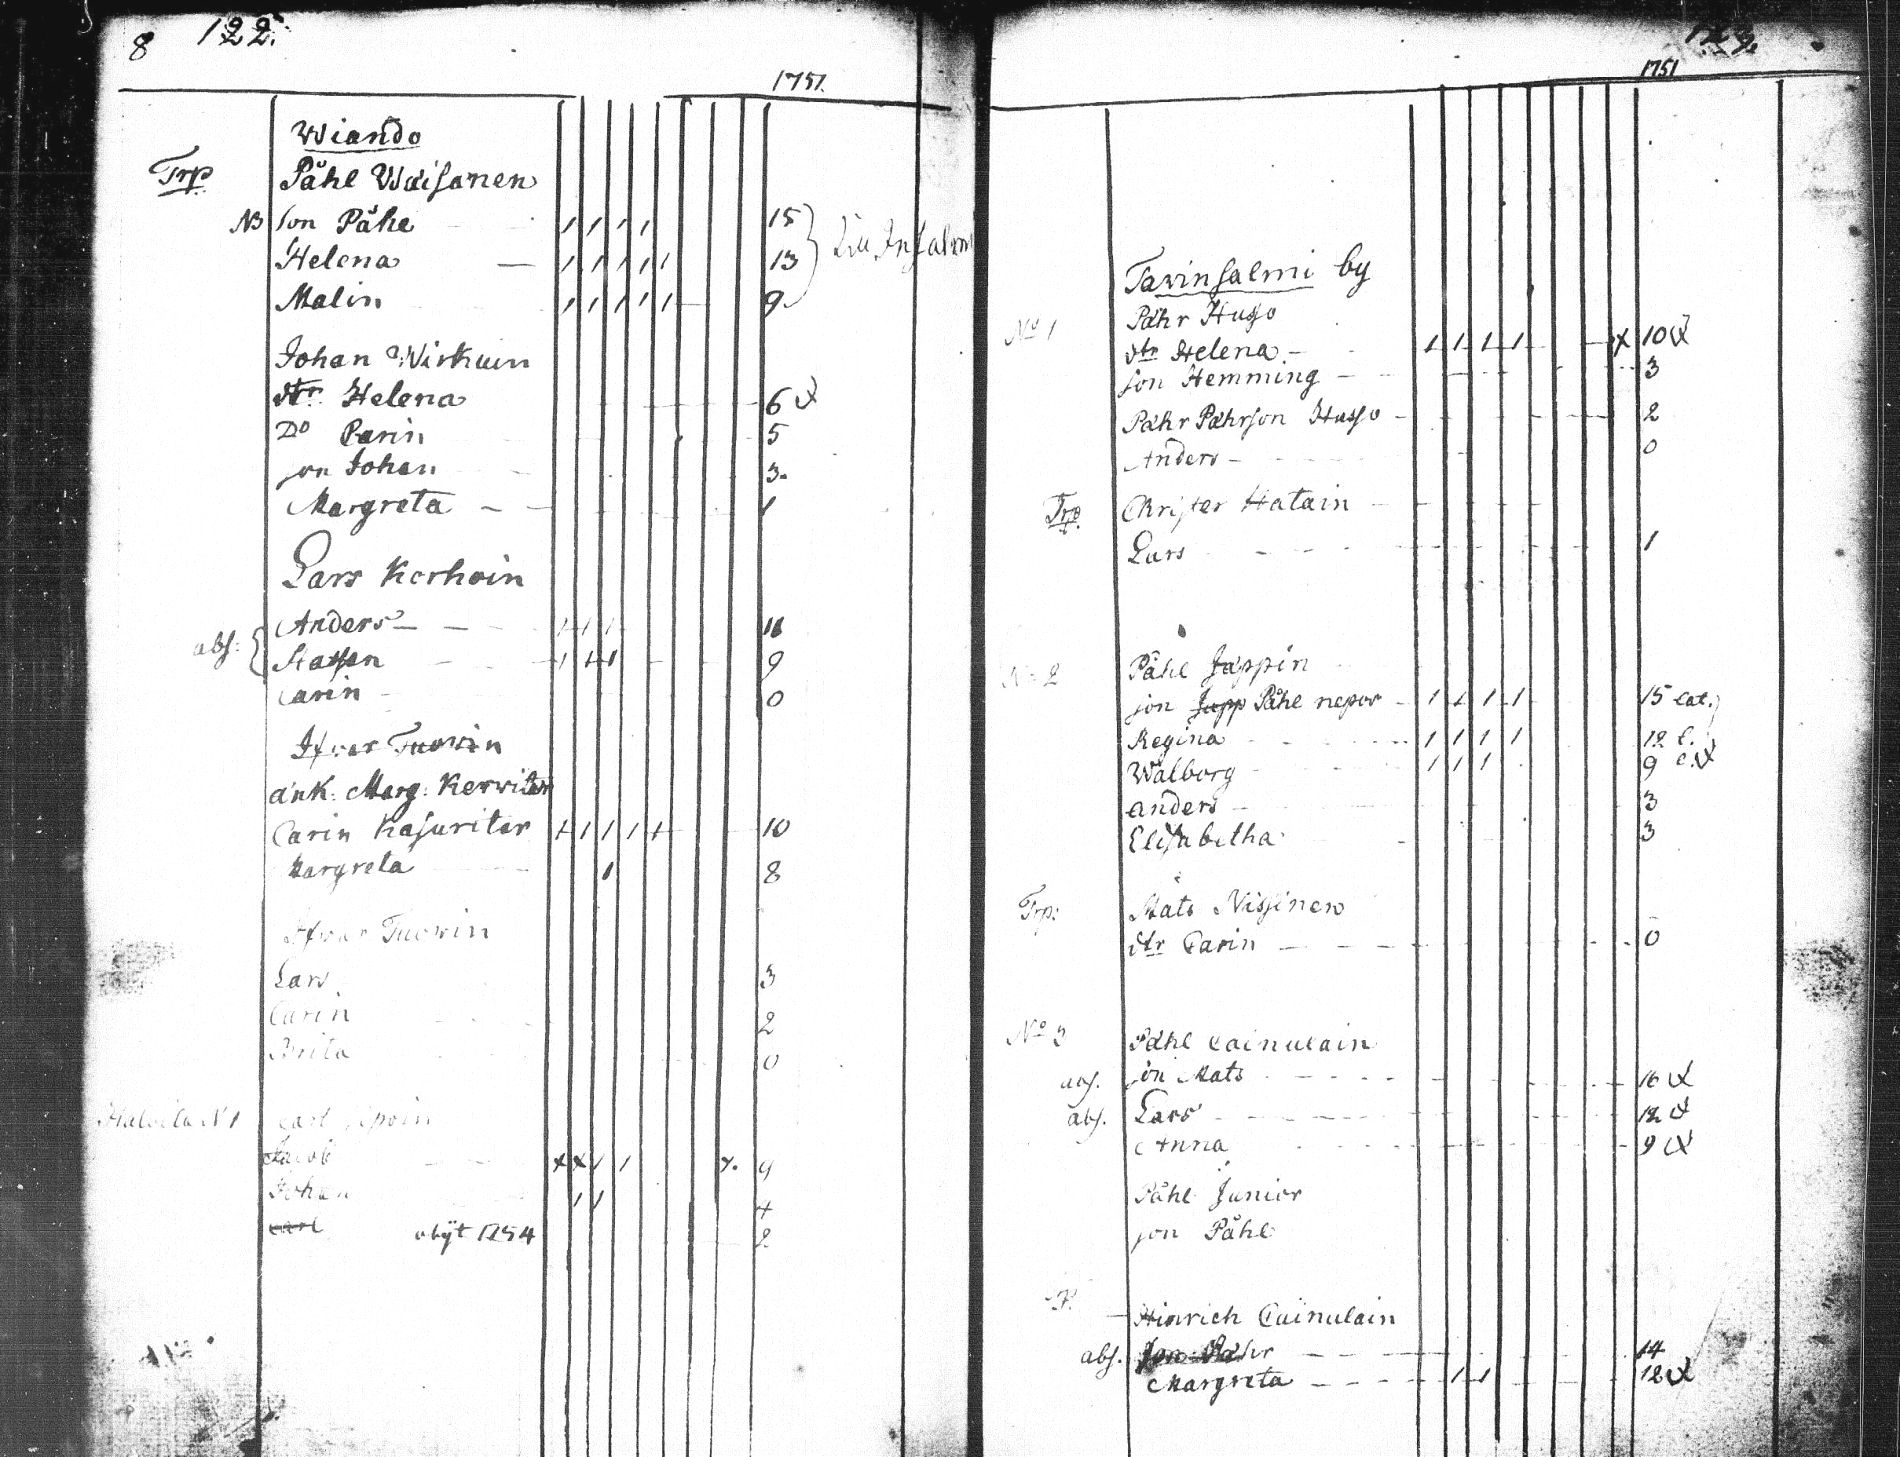 8 122.
1751.
Wiando
Trp Påhl Waisanen
NB son Påhl 15
Helena 13
Malin 9
Till Insalmi
Johan Wirkuin
dtr Helena 6
Do Carin 5
son Johan 3.
Margreta 1
Lars Kerhoin
abs: Anders 11
Staffan 9
Carin 0
Ifvar Tuowin
änk: Marg: Kerwitar
Carin Kasuritar 10
Margreta 8
Ifvar Tuowin
Lars 3
Carin 2
Brita 0
N 1 Carl
Jacob x x 1 1 x. 9
Johan 1 1 4
Carl obijt 1754 2
1751
Tavinsalmi by
No 1 Pähr Husso
dtr Helena 1 1 1 1 x 10
son Hemming 3
Pähr Pährson Husso 2
Anders 0
Trp. Christer Hatain
Lars 1
N: 2 Påhl Jäppin
son Jäpp Påhl nepos 1 1 1 1 15 cat.
Regina 1 1 1 1 12 c.
Walborg 1 1 1 9 c.
anders 3
Elisabetha 3
Trp: Mats Nissinen
dtr Carin 0
No 3 Påhl Cainulain
abs. son Mats 16
abs. Lars 12
Anna 9
Påhl Junior
son Påhl
Hinrich Cainulain
abs. son Pähr 14
Margreta 1 1 12